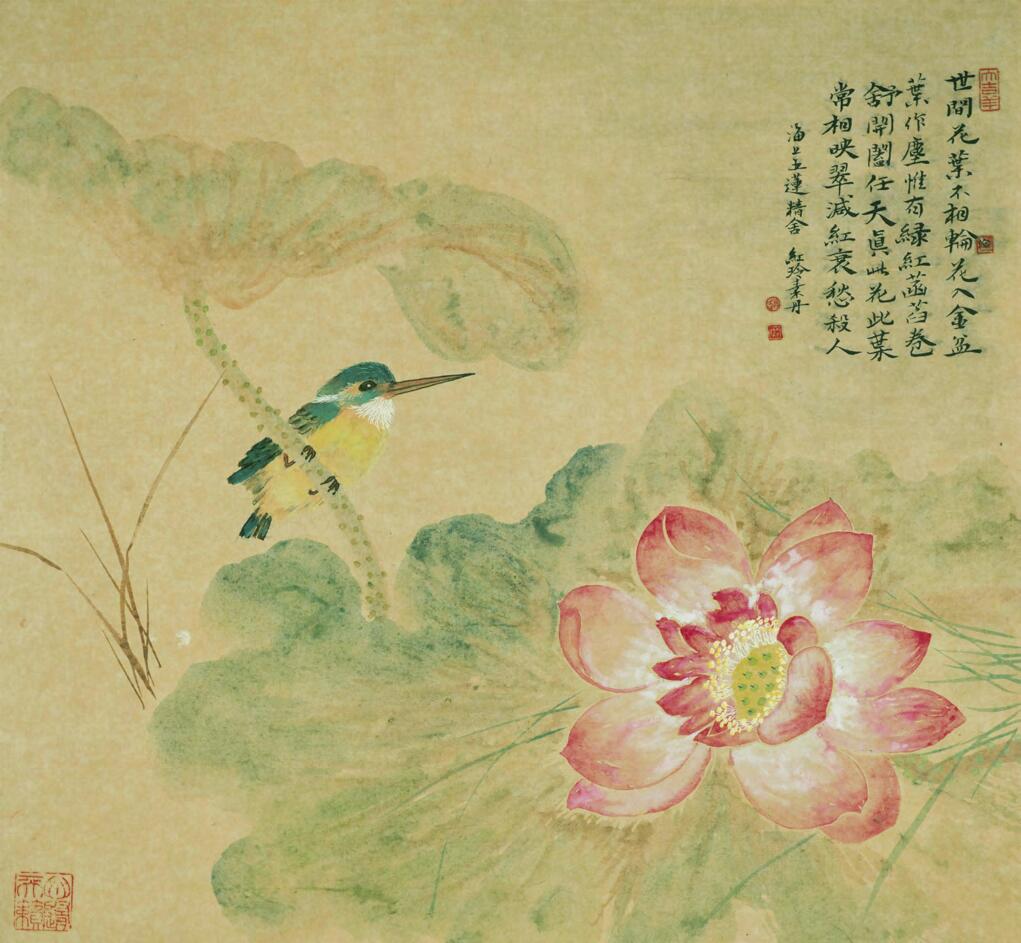 大吉羊
世間花葉不相輪花入金盆
葉作塵惟有緑紅菡萏卷
舒開闔任天真此花此葉
常相映翠減紅衰愁殺人
海上蓮精舍 紅玲素丹